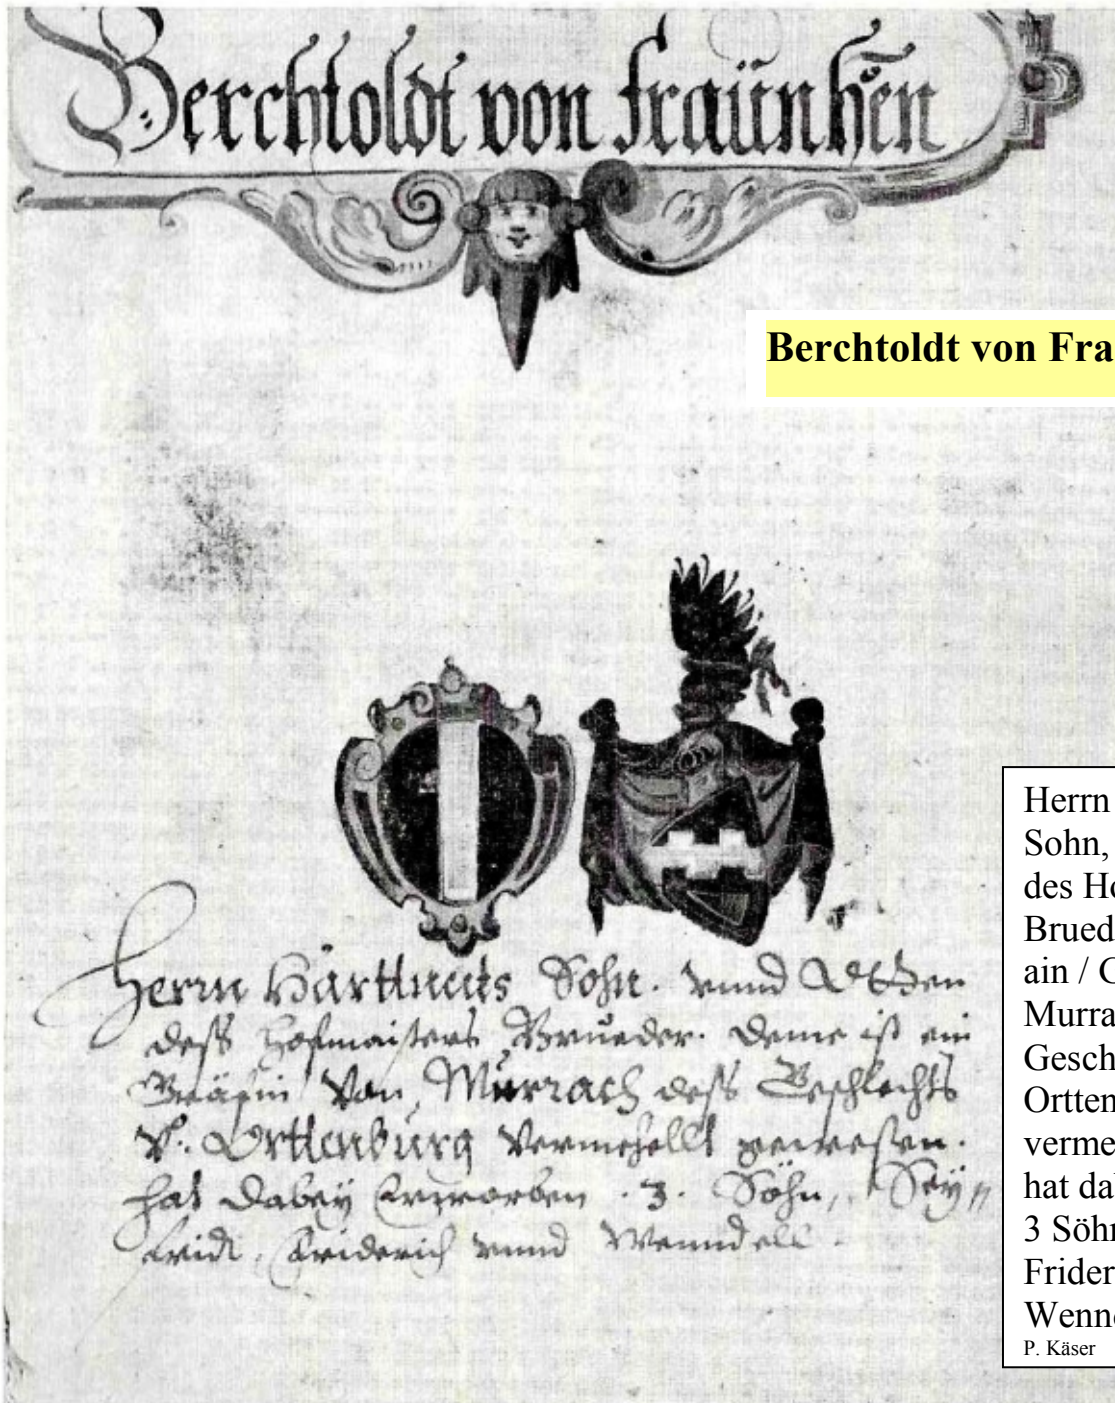 Berchtoldt von Fraünhen
Berchtoldt von Fra
Herrn Harttneids Sohn. vnnd Otten
dess Hofmaisters Brueder. deme ist ein
Gräfin Von Murrach dess Geschlechts
V. Orttenburg Vermehellt gewesen.
hat dabeÿ Erworben .3. Söhn, SeÿÌ
fridt, Friderich vnnd Wenndell.
Herrn
Sohn,
des Ho
Brued
ain / G
Murra
Gesch
Ortten
verme
hat da
3 Söhn
Frider
Wenn
P. Käser